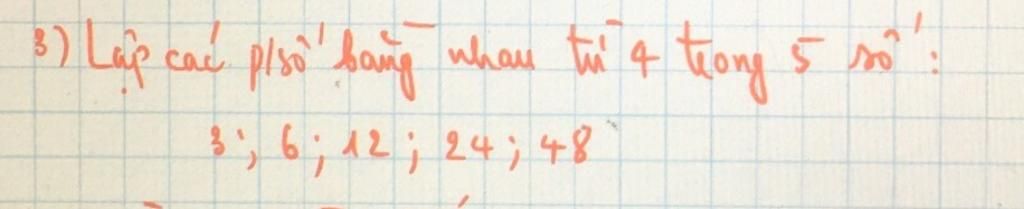 3) Lập các p/số bằng nhau từ 4 trong 5 số :
3 ; 6 ; 12 ; 24 ; 48